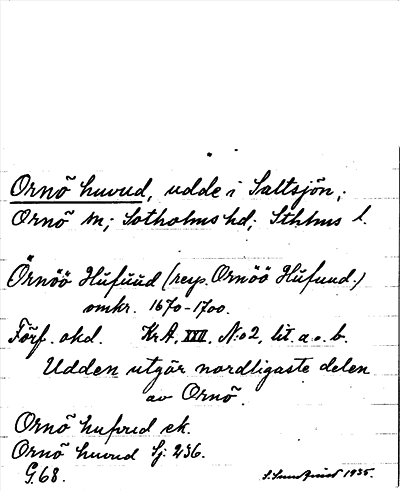 Ornö huvud, udde i Saltsjön,
Ornö sn; Sotholms hd; Sthlms l.
Örnöö Hufüüd (resp. Ornöö Hufuud.)
omkr. 1670-1700.
Förf. okd. KrA, XVII, N:o 2, lit. a o. b.
Udden utgör nordligaste delen
av Ornö.
Ornö hufvud ek.
Ornö huvud Sj. 236.
G. 68. 1935.